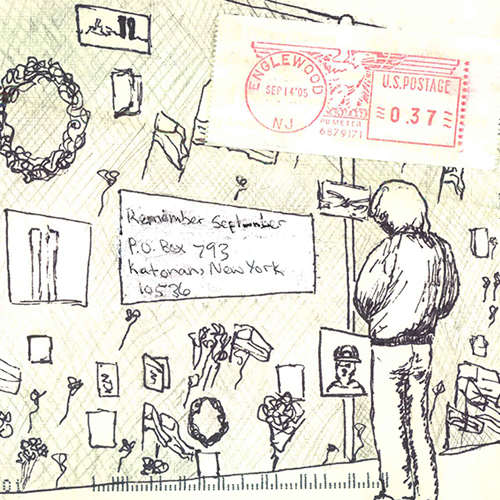 ENGLEWOOD
SEP 14 '05
NJ
U.S. POSTAGE
0.37
PB METER
6879171
Remember September
P.O. Box 793
Katonah, New York
10536